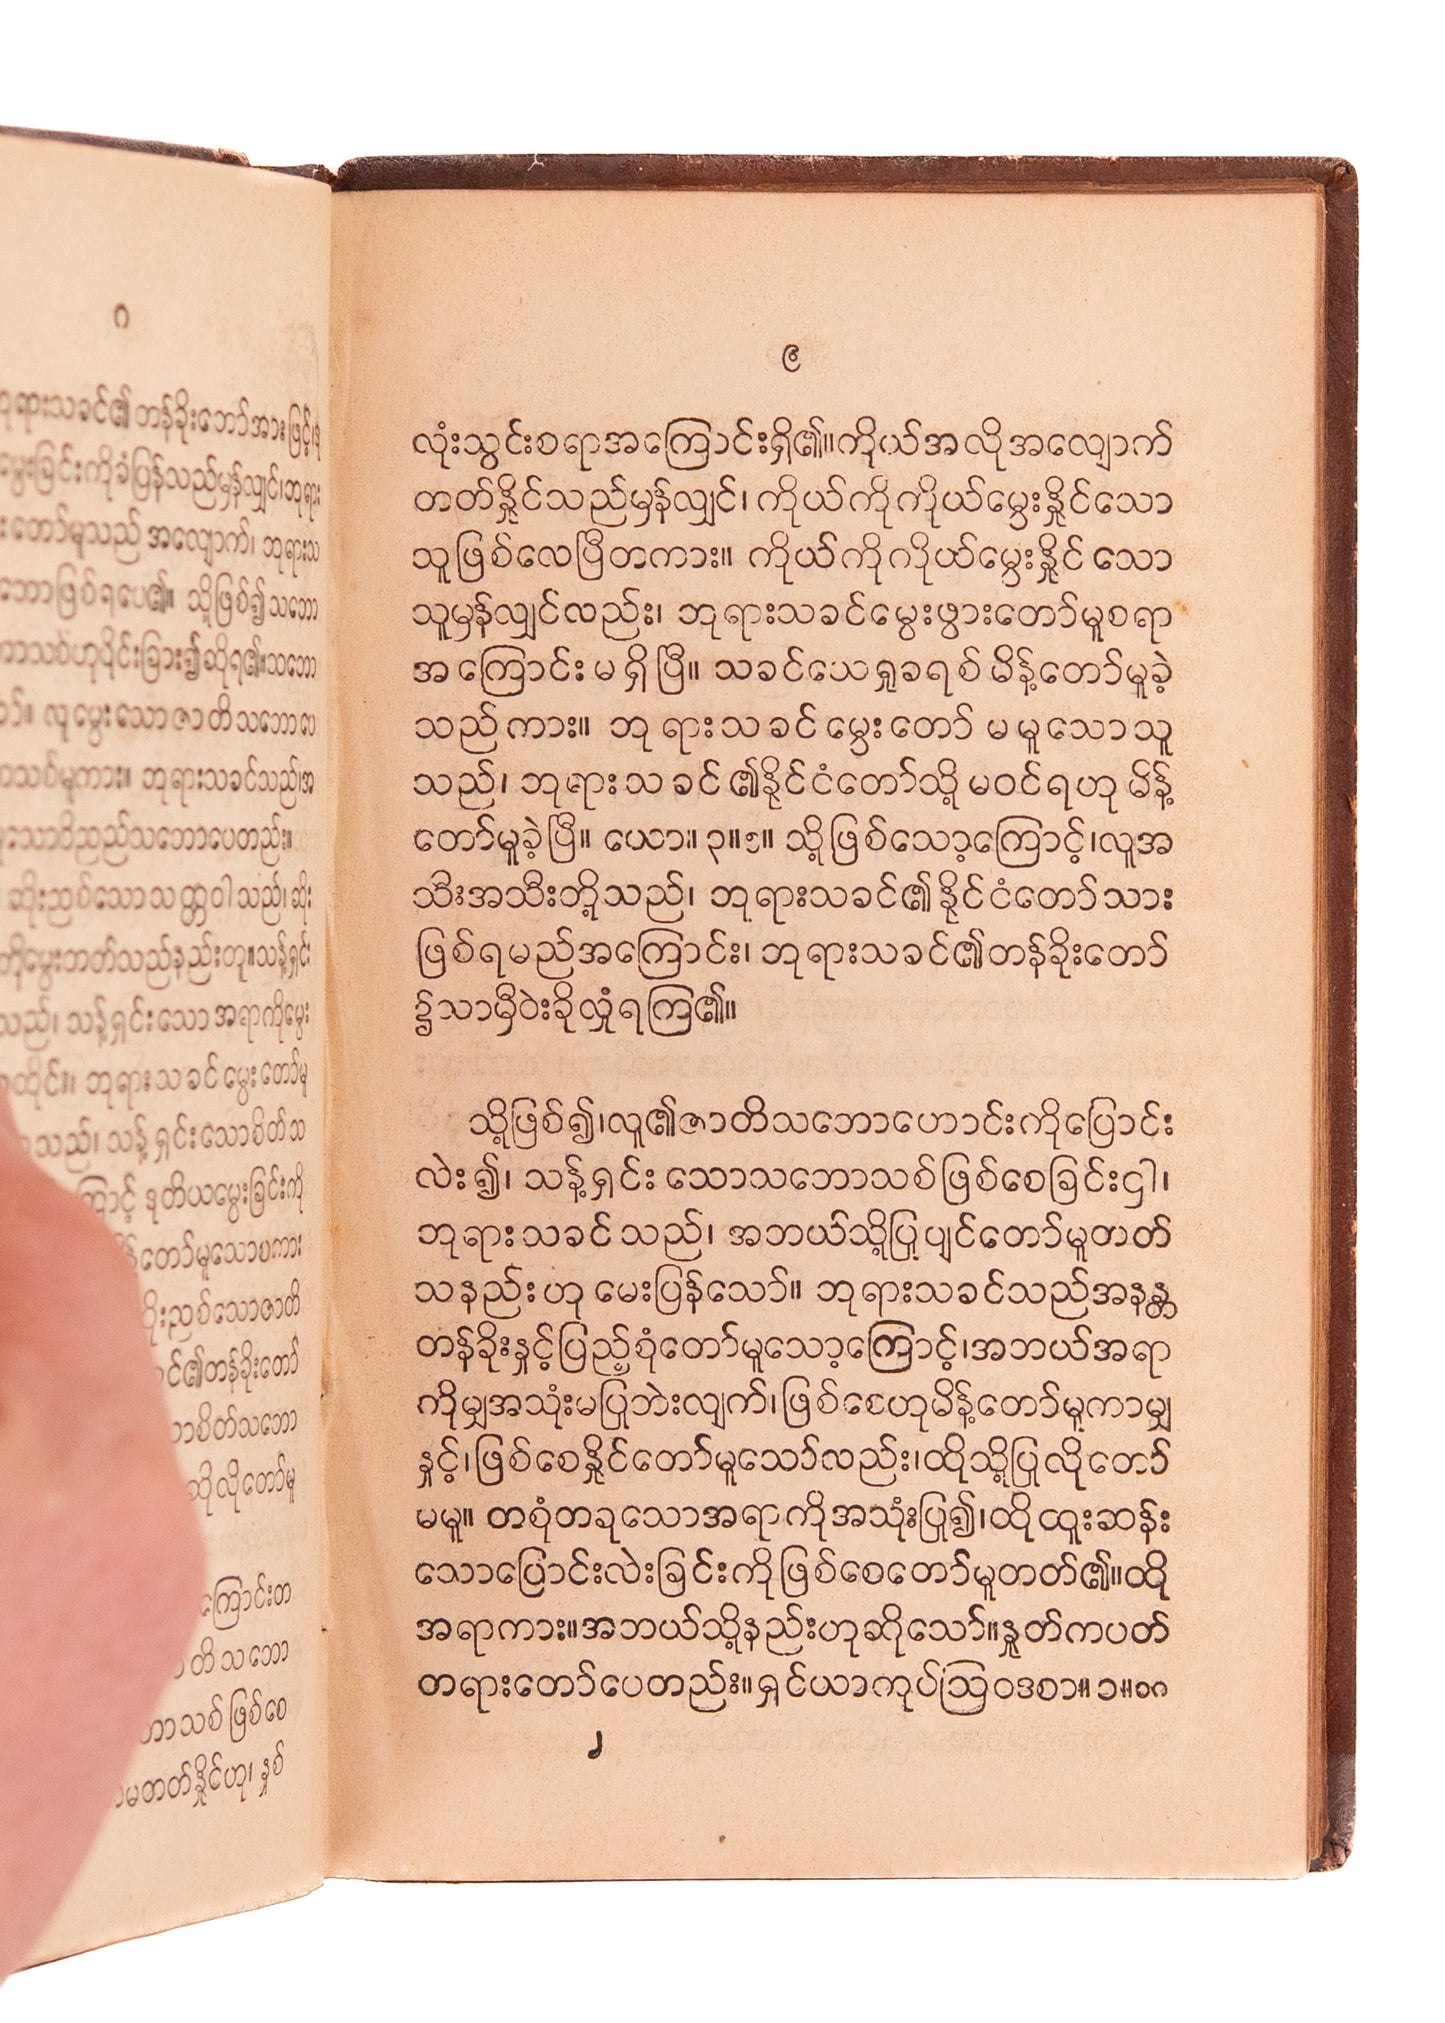 ၈
ဘုရားသခင်၏တန်ခိုးတော်အားဖြင့်
မွေးခြင်းကိုခံပြန်သည်မှန်လျှင်၊ဘုရား
တော်မူသည် အလျောက်၊ ဘုရားသ
ဘောဖြစ်ရပေ၏။ သို့ဖြစ်၍သဘော
ဟုပိုင်းခြား၍ဆိုရ၏။သဘော
လူမွေးသောဇာတိသဘောပေ
ကား။ ဘုရားသခင်သည်၊အ
သောဝိညည်သဘောပေတည်း။
ဆိုးညစ်သောသတ္တဝါသည်၊ဆိုး
ကိုမွေးတတ်သည်နည်းတူ။သန့်ရှင်း
သည်၊ သန့်ရှင်းသောအရာကိုမွေး
ဘုရားသခင်မွေးတော်မူ
သည်၊ သန့်ရှင်းသောစိတ်သ
ကြောင့် ဒုတိယမွေးခြင်းကို
မိန့်တော်မူသောစကား
ဆိုးညစ်သောဇာတိ
ခင်၏တန်ခိုးတော်
စိတ်သဘော
ဆိုလိုတော်မူ
ကြောင်းတ
တိသဘော
သစ်ဖြစ်စေ
မတတ်နိုင်ဟု၊ နှစ်
၉
လုံးသွင်းစရာအကြောင်းရှိ၏။ကိုယ်အလိုအလျောက်
တတ်နှိုင်သည်မှန်လျှင်၊ ကိုယ်ကိုကိုယ်မွေးနှိုင်သော
သူဖြစ်လေပြီတကား။ ကိုယ်ကိုကိုယ်မွေးနှိုင်သော
သူမှန်လျှင်လည်း၊ ဘုရားသခင်မွေးဖွားတော်မူစရာ
အကြောင်းမရှိပြီ။ သခင်ယေရှုခရစ်မိန့်တော်မူခဲ့
သည်ကား။ ဘုရားသခင်မွေးတော်မမူသောသူ
သည်၊ ဘုရားသခင်၏နိုင်ငံတော်သို့မဝင်ရဟုမိန့်
တော်မူခဲ့ပြီ။ ယော။ ၃။၅။ သို့ဖြစ်သော့ကြောင့်၊လူအ
သီးအသီးဘို့သည်၊ ဘုရားသခင်၏နိုင်ငံတော်သား
ဖြစ်ရမည်အကြောင်း၊ ဘုရားသခင်၏တန်ခိုးတော်
၌သာမှီဝဲးခိုလှုံရကြ၏။
သို့ဖြစ်၍၊လူ၏ဇာတိသဘောဟောင်းကိုပြောင်း
လဲး၍၊ သန့်ရှင်းသောသဘောသစ်ဖြစ်စေခြင်းငှါ၊
ဘုရားသခင်သည်၊ အဘယ်သို့ပြုပျင်တော်မူတတ်
သနည်းဟုမေးပြန်သော်။ ဘုရားသခင်သည်အနန္တ
တန်ခိုးနှင့်ပြည့်စုံတော်မူသော့ကြောင့်၊အဘယ်အရာ
ကိုမျှအသုံးမပြုဘဲးလျက်၊ဖြစ်စေဟုမိန့်တော်မူကာမျှ
နှင့်၊ဖြစ်စေနှိုင်တော်မူသော်လည်း၊ထိုသို့ပြုလိုတော်
မမူ။ တစုံတခုသောအရာကိုအသုံးပြု၍၊ထိုထူးဆန်း
သောပြောင်းလဲးခြင်းကိုဖြစ်စေတော်မူတတ်၏။ထို
အရာကား။အဘယ်သို့နည်းဟုဆိုသော်။နှုတ်ကပတ်
တရားတော်ပေတည်း။ရှင်ယာကုပ်ဩဝဒစာ။ ၁။၁၈